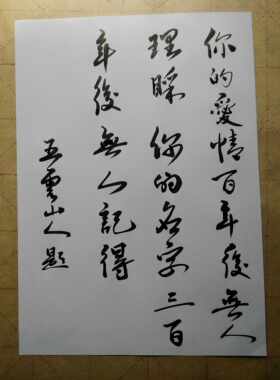 你的愛情百年後無人
理睬你的名字三百
年後無人記得
五雲山人題